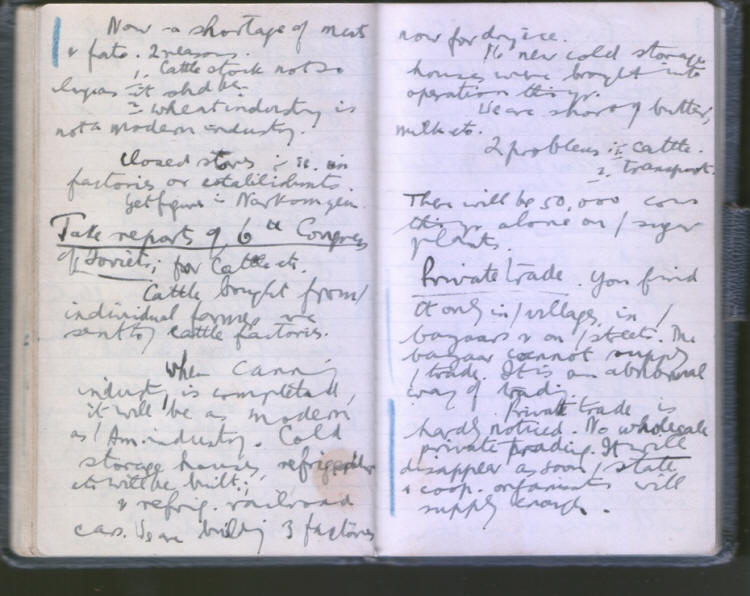 Now a shortage of meat
& fats. 2 reasons.
1. Cattle stock not so
big as it shd be.
2. meat industry is
not a modern industry.
Closed stores in
factories or establishments.
Get figures Narkom
Take reports of 6th Congress
of Soviets; for Cattle etc.
Cattle bought from /
individual farmers, we
send to cattle factories.
When Canning
indust, is completed,
it will be as modern
as / Am. industry. Cold
storage houses, refrigerator
etc will be built;
& refrig. railroad
cars. We are building 3 factories
now for dry ice.
16 new cold storage
houses were brought into
operation this yr.
We are short of butter,
milk etc.
2 problems 1. cattle.
2. transport.
There will be 50,000 cows
this yr. alone on / sugar
plants.
Private trade. You find
it only in / village, in /
bazaars & on / streets. The
bazaar cannot supply
/ trade. It is an abnormal
way of trading
Private trade is
hardly noticed. No wholesale
private trading. It will
disappear as soon / state
& coop. organizats will
supply enough.